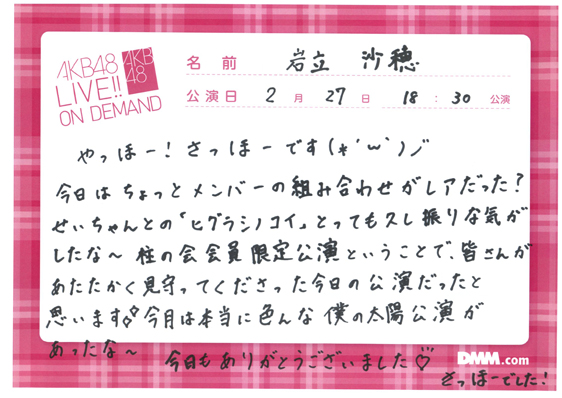 AKB48
LIVE!!
ON DEMAND
AKB
48
名前 岩立 沙穂
公演日 2月27日 18:30公演
やっほー！さっほーです(*´ω`)ノ
今日はちょっとメンバーの組み合わせがレアだった？
せいちゃんとの「ヒグラシノコイ」とっても久し振りな気が
したな〜 柱の会会員限定公演ということで、皆さんが
あたたかく見守ってくださった今日の公演だったと
思います 今月は本当に色んな僕の太陽公演が
あったな〜 今日もありがとうございました♡
DMM.com
さっほーでした！